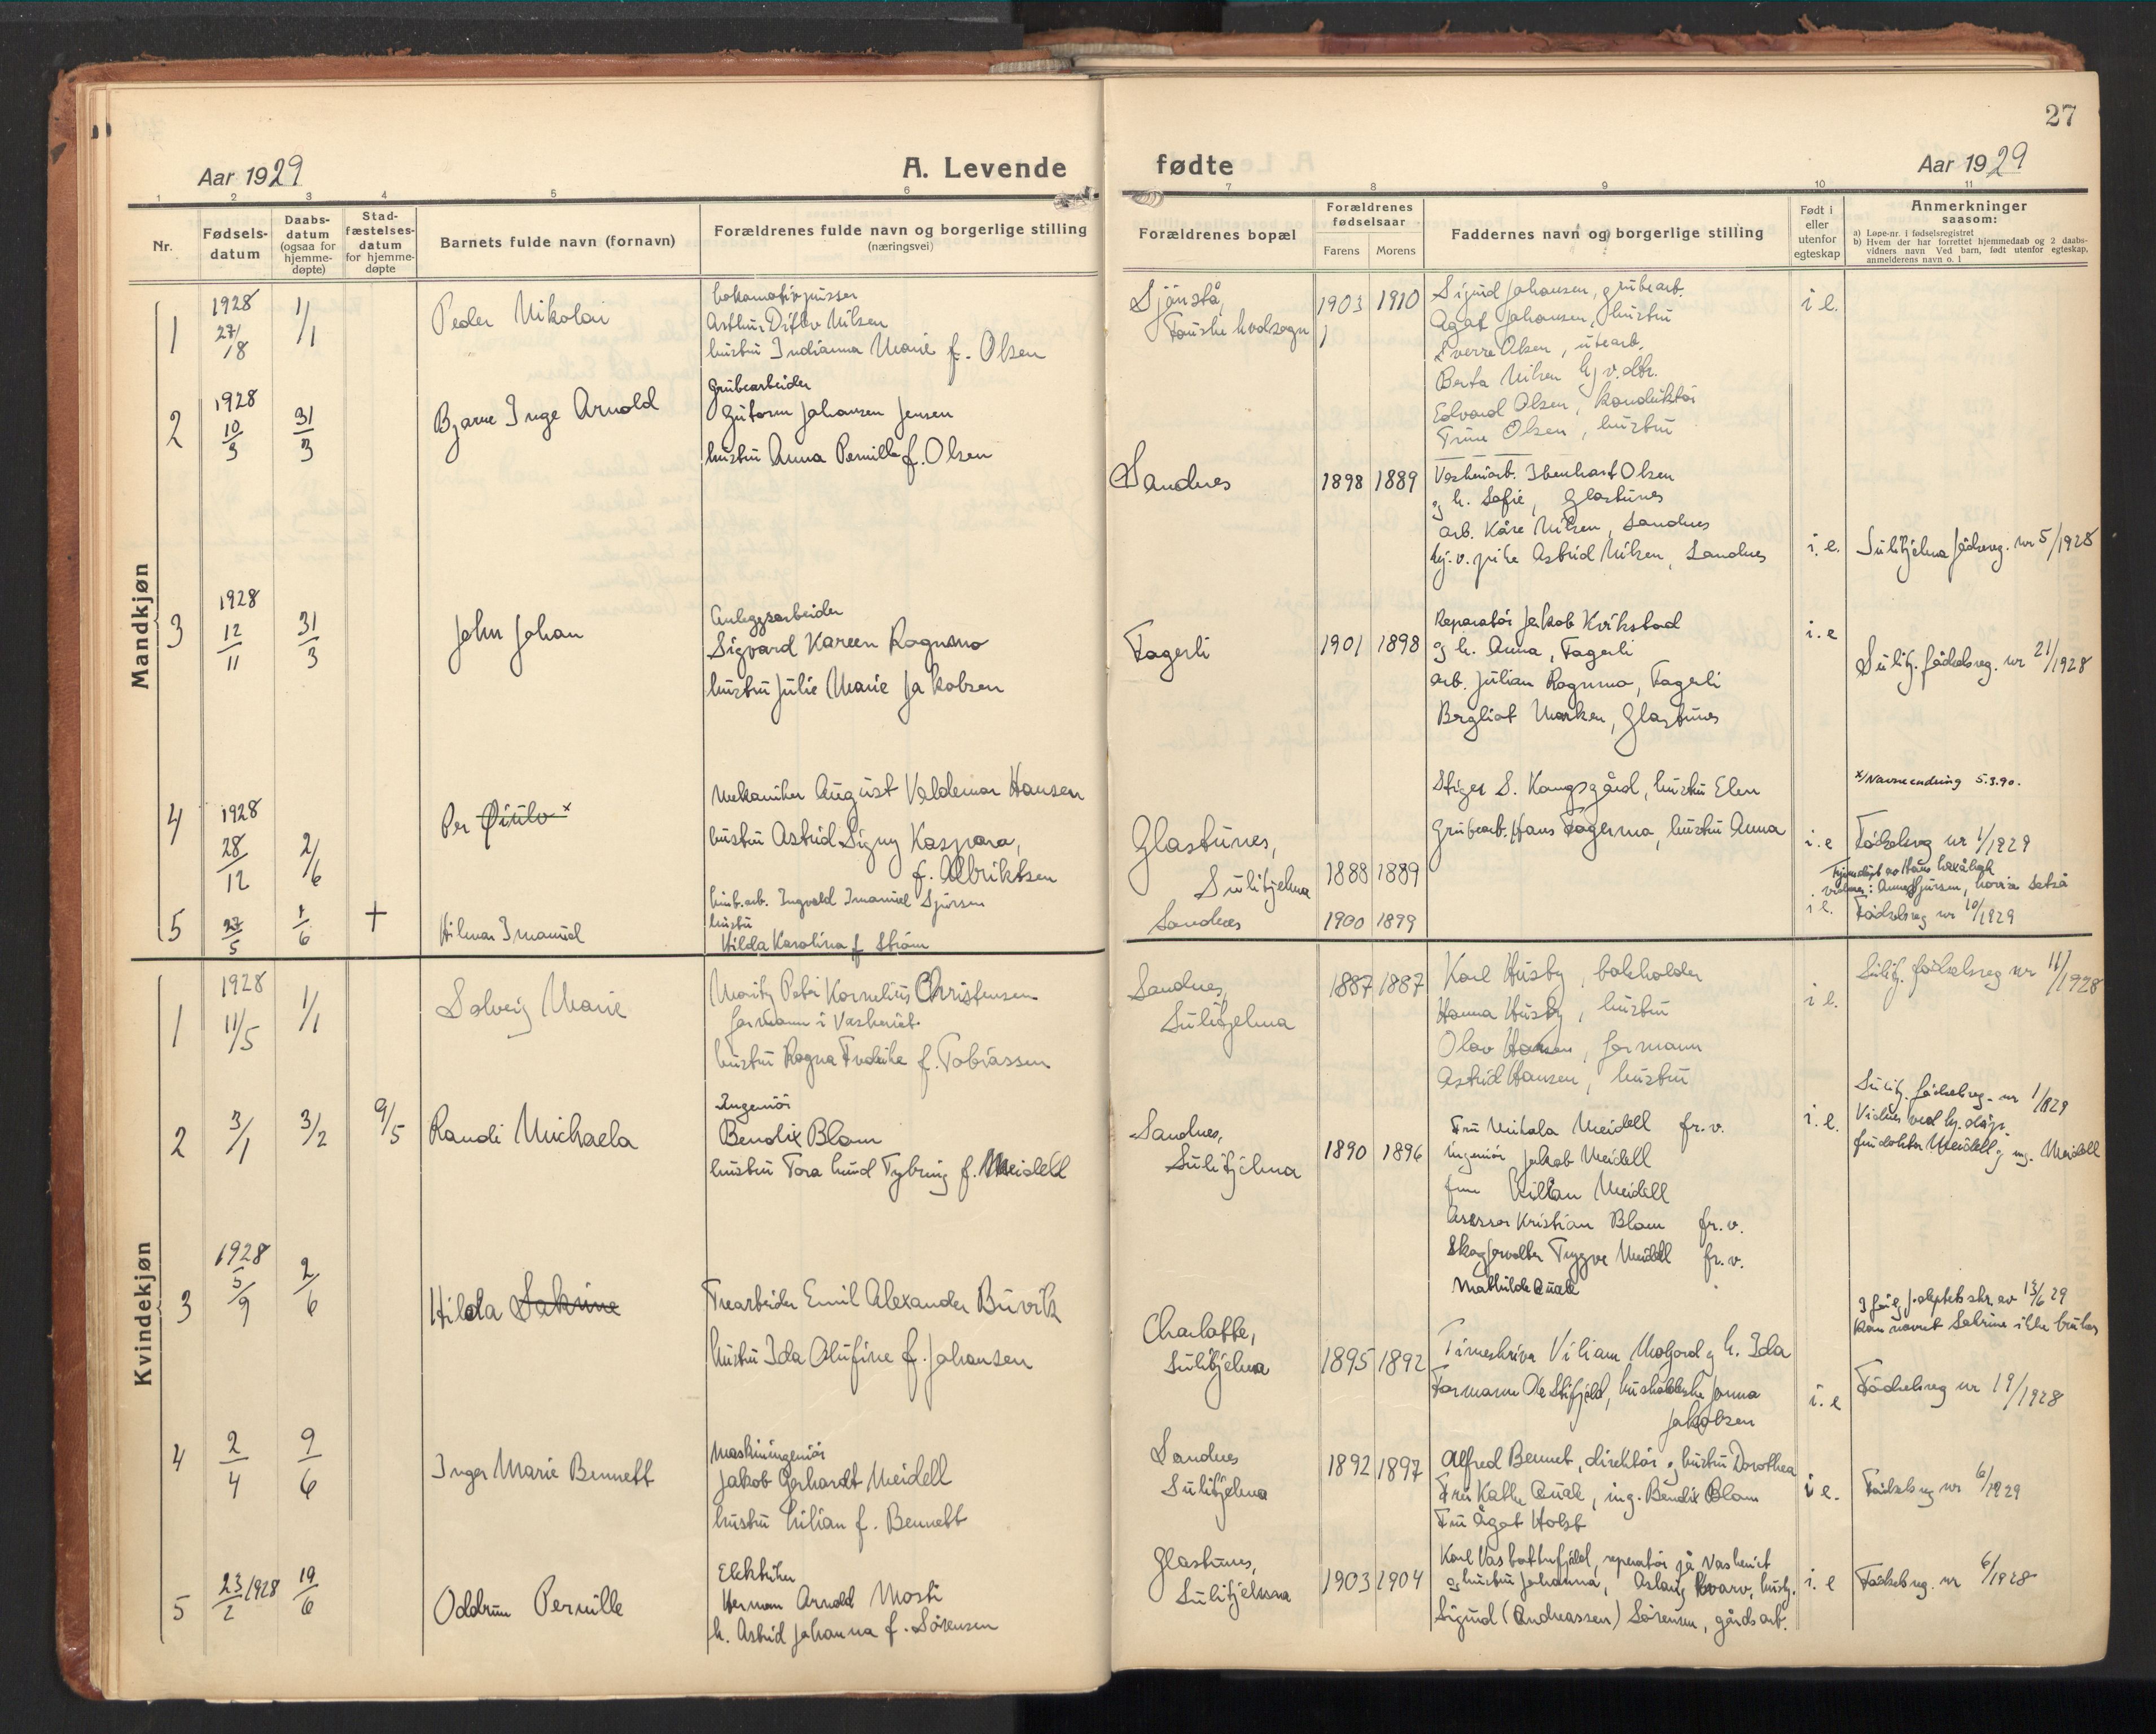 27
Aar 1929
A. Levende
fødte
Aar 1929
1 2 3 4 5 6 7 8 9 10 11
Nr.
Fødsels-
datum
Daabs-
datum
(ogsaa for
hjemme-
døpte)
Stad-
fæstelses-
datum
for hjemme-
døpte
Barnets fulde navn (fornavn)
Forældrenes fulde navn og borgerlige stilling
(næringsvei)
Forældrenes bopæl
Forældrenes
fødselsaar
Farens Morens
Faddernes navn og borgerlige stilling
Født i
eller
utenfor
egteskap
Anmerkninger
saasom:
a) Løpe-nr. i fødselsregistret
b) Hvem der har forrettet hjemmedaab og 2 daabs-
vidners navn Ved barn, født utenfor egteskap,
anmelderens navn o. l
Mandkjøn
1
1928
27/8
1/1
Peder Nikolai
Lokomotivpusser
Arthur Ditlev Nilsen
hustru Indianna Marie f. Olsen
Sjönstå,
Fauske hvdsogn
1903 1910
Sigurd Johansen, grubearb.
Agat Johansen, hustru
Sverre Olsen, utearb.
Berta Nilsen hj.v.dtr.
Edvard Olsen, konduktör
Trine Olsen, hustru
i e.
2
1928
10/3
31/3
Bjarne Inge Arnold
Grubearbeider
Gutorm Johansen Jensen
hustru Anna Pernille f. Olsen
Sandnes
1898 1889
Vaskeriarb. Ibenhart Olsen
og h. Sofie, Glastunes
arb. Kåre Nilsen, Sandnes
hj.v. pike Astrid Nilsen, Sandnes
i.e.
Sulitjelma födsreg. nr 5/1928
3
1928
12/11
31/3
John Johan
Anleggsarbeider
Sigvard Kareen Rognmo
hustru Julie Marie Jakobsen
Fagerli
1901 1898
Reparatör Jakob Kvikstad
og h. Anna, Fagerli
arb. Julian Rognmo, Fagerli
Bergliot Marken, Glastunes
i.e
Sulitj. födselsreg. nr 21/1928
4
1928
28/12
2/6
Per Öiulv x
Mekaniker August Valdemar Hansen
hustru Astrid Signy Kaspara,
f. Albriktsen
Glastunes,
Sulitjelma
1888 1889
Stiger S. Kongsgård, hustru Elen
Grubearb. Hans Fagermo, hustru Anna
i.e
x/ Navneendring 5.3.90.
Födselsreg nr 1/1929
5
27/5
1/6
+
Hilmar Imanuel
Ingvald Imanuel Sjursen
hustru
Hilda Karolina f Ström
Sandnes
1900 1899
i e.
Födselsreg nr 10/1929
Kvindekjøn
1
1928
11/5
1/1
Solveig Marie
Moritz Peter Kornelius Christensen
formann i Vaskeriet
hustru Ragna Fredrike f. Tobiassen
Sandnes,
Sulitjelma
1887 1887
Karl Husby, bokholder
Hanna Husby, hustru
Olav Hansen, formann
Astrid Hansen, hustru
i e.
Sulitj. födselsreg nr 11/1928
2
3/1
3/2
9/5
Randi Michaela
Ingeniör
Bendix Blom
hustru Tora Lund Tybring f. Meidell
Sandnes,
Sulitjelma
1890 1896
Fru Mikala Meidell fr.v.
ingeniör Jakob Meidell
fru Lillian Meidell
Assessor Kristian Blom fr.v.
Skogforvalter Trygve Meidell fr.v.
Mathilde Quale
i.e.
Sulitj. födselsreg. nr 1/1929
Vidner ved hj.dåp:
frudoktor Meidell og ing. Meidell
3
1928
5/9
2/6
Hilda Sabrine
Trearbeider Emil Alexander Buvik
hustru Ida Olufine f. Johansen
Charlotte,
Sulitjelma
1895 1892
Timeskriver Viliam Mofjord og h. Ida
Formann Ole Stifjeld, husholderske Jonna
Jakobsen
i.e
I følg j. dptets skr. av 13/6 29
kan navnet Sabrine ikke brukes
Födselsreg nr 19/1928
4
2/4
9/6
Inger Marie Bennett
Maskiningeniör
Jakob Gerhardt Meidell
hustru Lilian f. Bennett
Sandnes
Sulitjelma
1892 1897
Alfred Bennet, direktör og hustru Dorothea
Fru Kathe Quale, ing. Bendix Blom
Fru Ågot Holst
i e.
Födselsreg nr 6/1929
5
23/2 1928
19/6
Oddrun Pernille
Elektriker
Herman Arnold Mosti
h. Astrid Johanna f. Sörensen
Glastunes,
Sulitjelma
1903 1904
Karl Vasbottnfjeld, reperatör på Vaskeriet
og hustru Johanna, Aslaug Kvarv, hustr.
Sigurd (Andreassen) Sörensen, gårdsarb.
i. e
Födselsreg. nr 6/1928